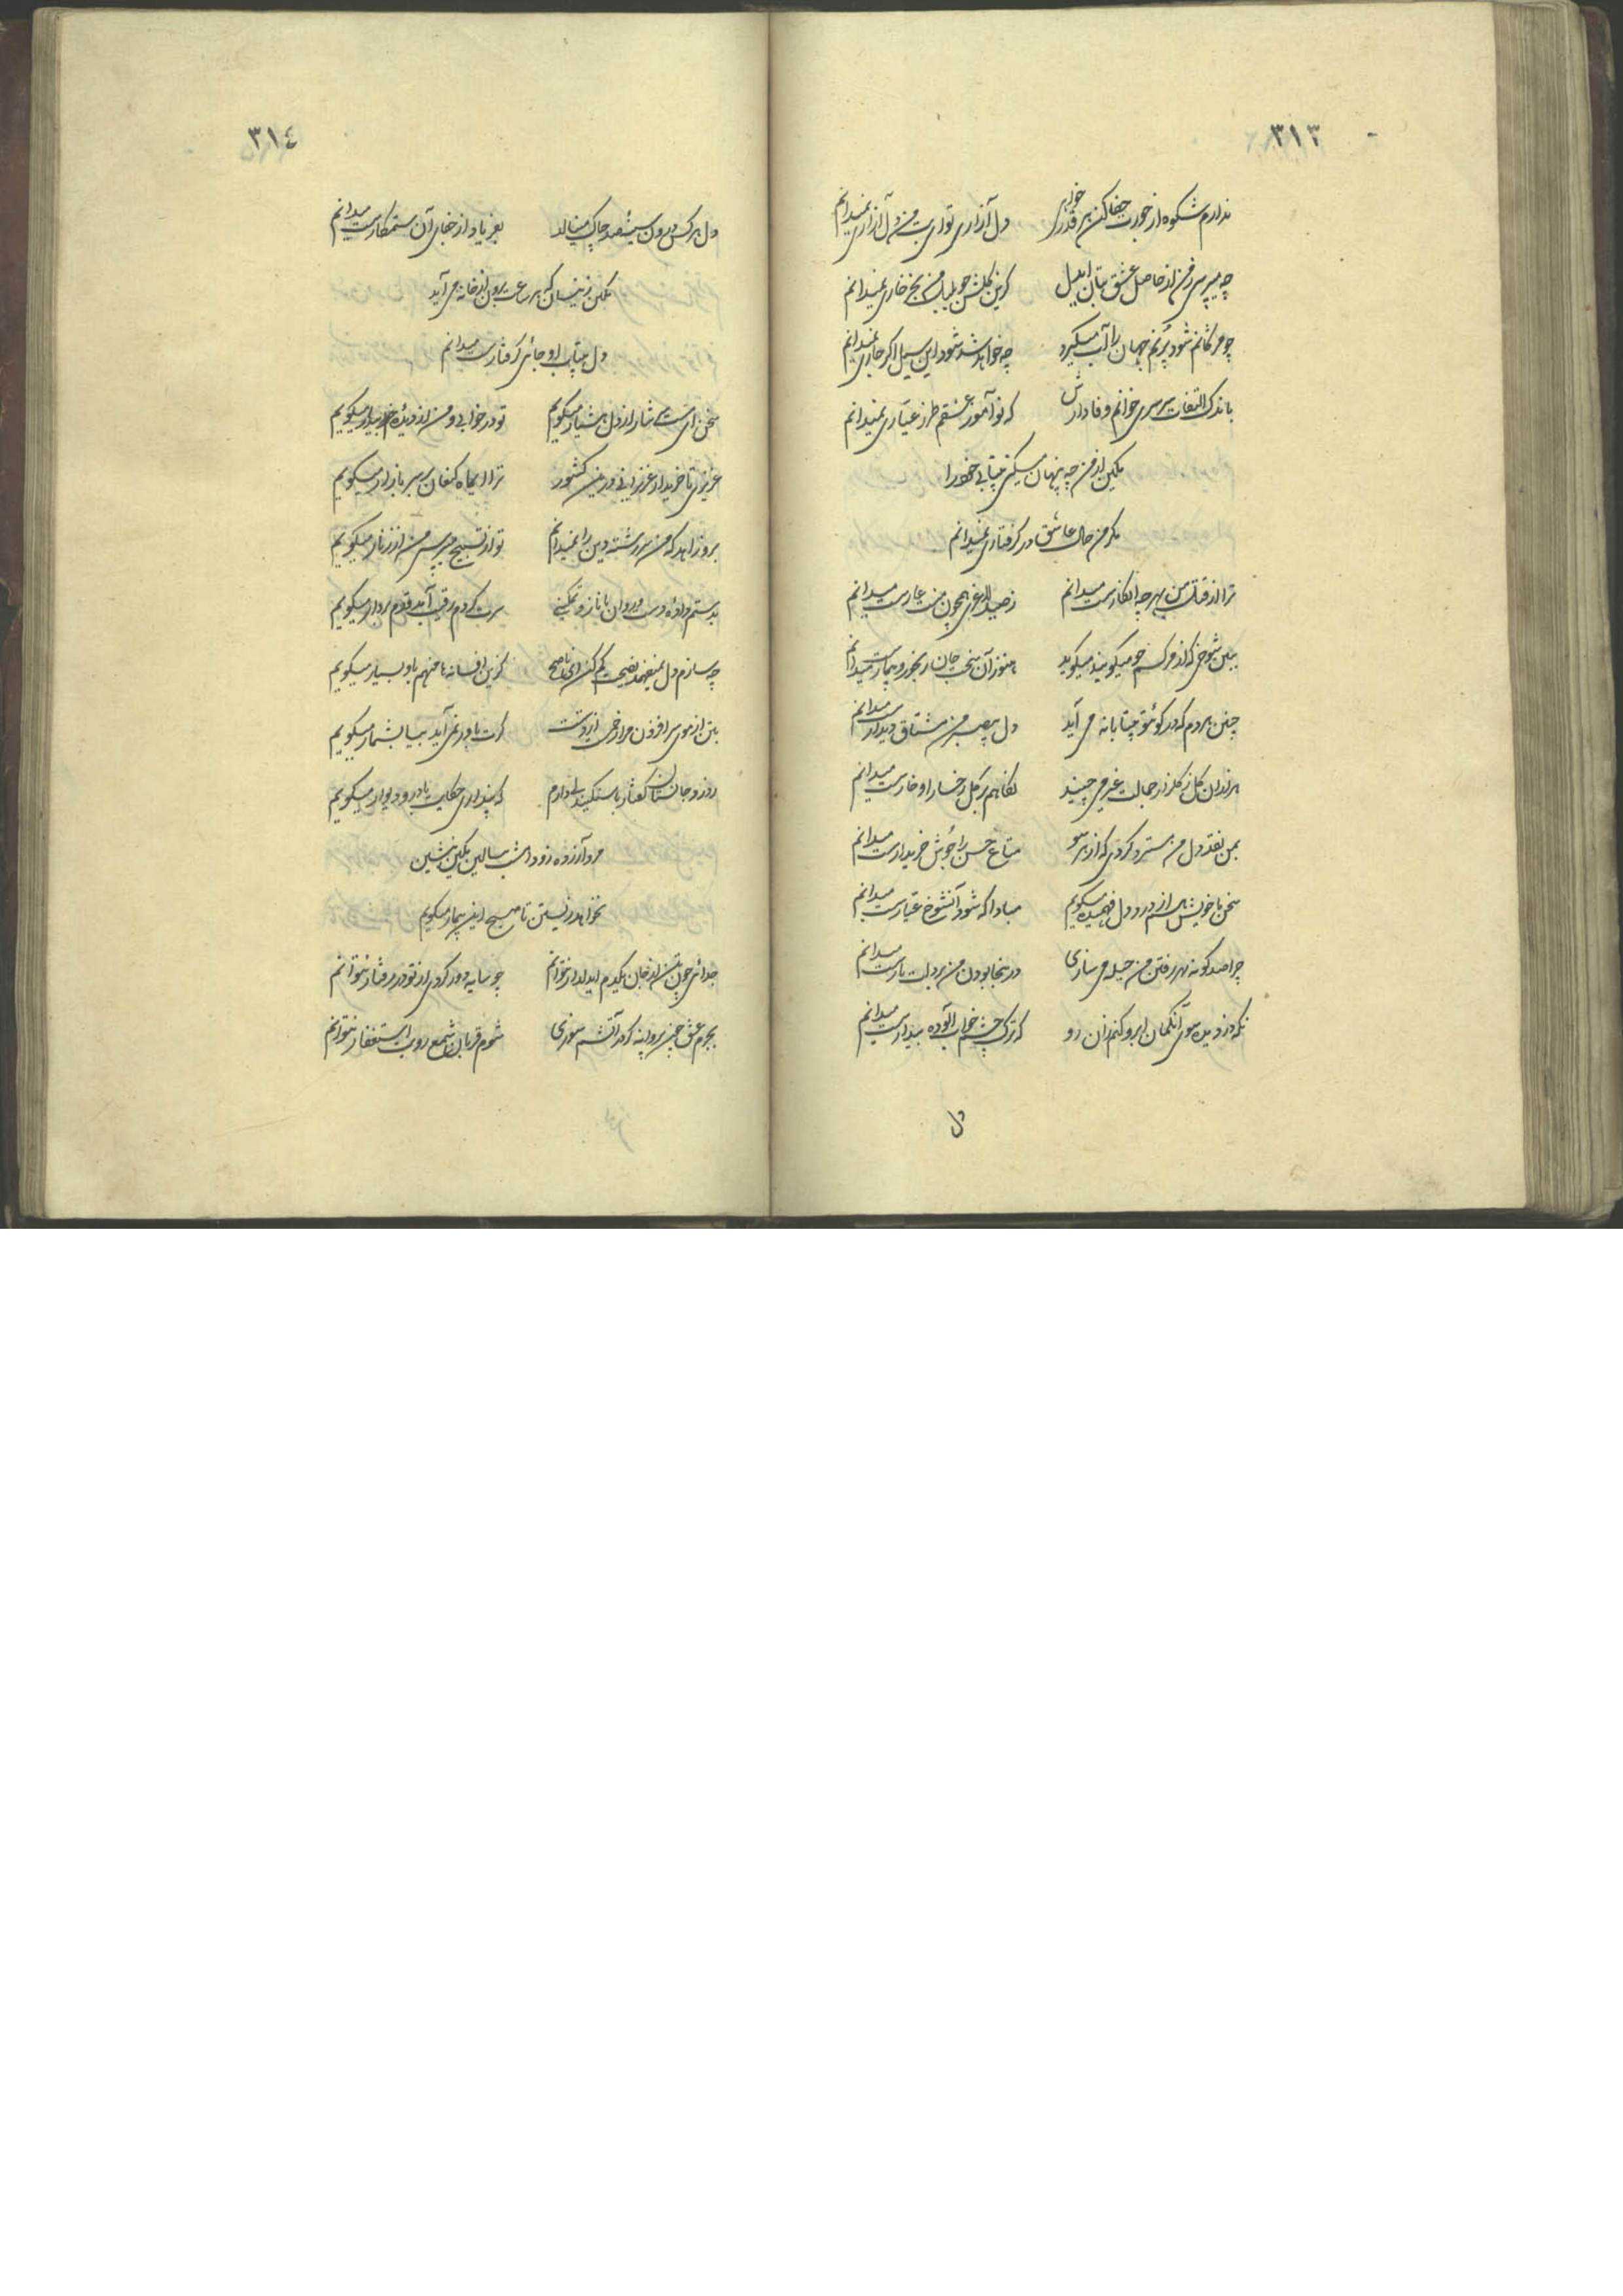 ٣١٣
ندارم شکوه از جورت جفا کن هر قدر خواهی دل آزاری تو داری من دل آزاری نمیدانم
چه میپرسی ز من از حاصل عشق بتان ایدل کزین گلشن چو بلبل من بجز خاری نمیدانم
چو مژگانم شود پرنم جهان را آب میگیرد چه خواهد شد شود این سیل اگر جاری نمیدانم
باندک التفات سرسری خوانم وفادارش که نوآموز عشقم طرز عیاری نمیدانم
مکین از من چه پنهان میکنی بیتابی خود را
مگر من حال عاشق در گرفتاری نمیدانم
ترا از قتل من بهر چه انکارست میدانم ز صید لاغری همچون منت عارست میدانم
ببین شوخی که از مرگم چو میگویند میگوید هنوز آن سخت جان رنجور و بیمارست میدانم
چنین هر دم که در کوی تو بیتابانه می آید دل بیصبر من مشتاق دیدارست میدانم
هزاران گل ز گلزار جمالت غیر می چیند نگاهم بر گل رخسار او خارست میدانم
بمن نقد دل من مسترد کردی که از هر سو متاع حسن را جوش خریدارست میدانم
سخن با خویش هم از درد دل فهمیده میگویم مبادا که شود آنشوخ عیارست میدانم
چرا صد گونه بهر رفتن من حیله می سازی در ینجا بودن من بر دلت بارست میدانم
نگه دزدیده سوی آنکمان ابرو کنم زان رو که ترک چشم خواب آلوده بیدارست میدانم
دل
٣١٤
دل هر کس درون سینهٔ صد چاک مینالد بفریاد از جفای آن ستمکارست میدانم
مکین زینسان که هر ساعت برون از خانه می آید
دل بیتاب او جائی گرفتارست میدانم
سخن ای مست ناز از دل هشیار میگویم تو در خوابی و من از دیدهٔ بیدار میگویم
عزیزی تا خریدار عزیزانی درین کشور ترا ایماه کنعان بر سر بازار میگویم
برو زاهد که من سررشته دین را نمیدانم تو از تسبیح میپرسی من از زنار میگویم
بدستم داده دست و روان با ناز و تمکینی سرت گردم رقیب آمد قدم بردار میگویم
چه سازم دل نمیفهمد نصیحت کم کن ای ناصح کزین افسانه ها منهم باو بسیار میگویم
بتن از موی افزون مرا زخمی از دستت گرت باور نمی آید بیا بشمار میگویم
که پنداری حکایت با در و دیوار میگویم
مرو آزرده زود امشب ببالین مکین بنشین
نخواهد زیستن تا صبح این بیمار میگویم
جدائی چون تن از جان یکدم ایدلدار نتوانم چو سایه دور گردی از تو در رفتار نتوانم
بجرم عشق چون پروانه گر در آتشم سوزی شوم قربان ز شمع رویت استغفار نتوانم